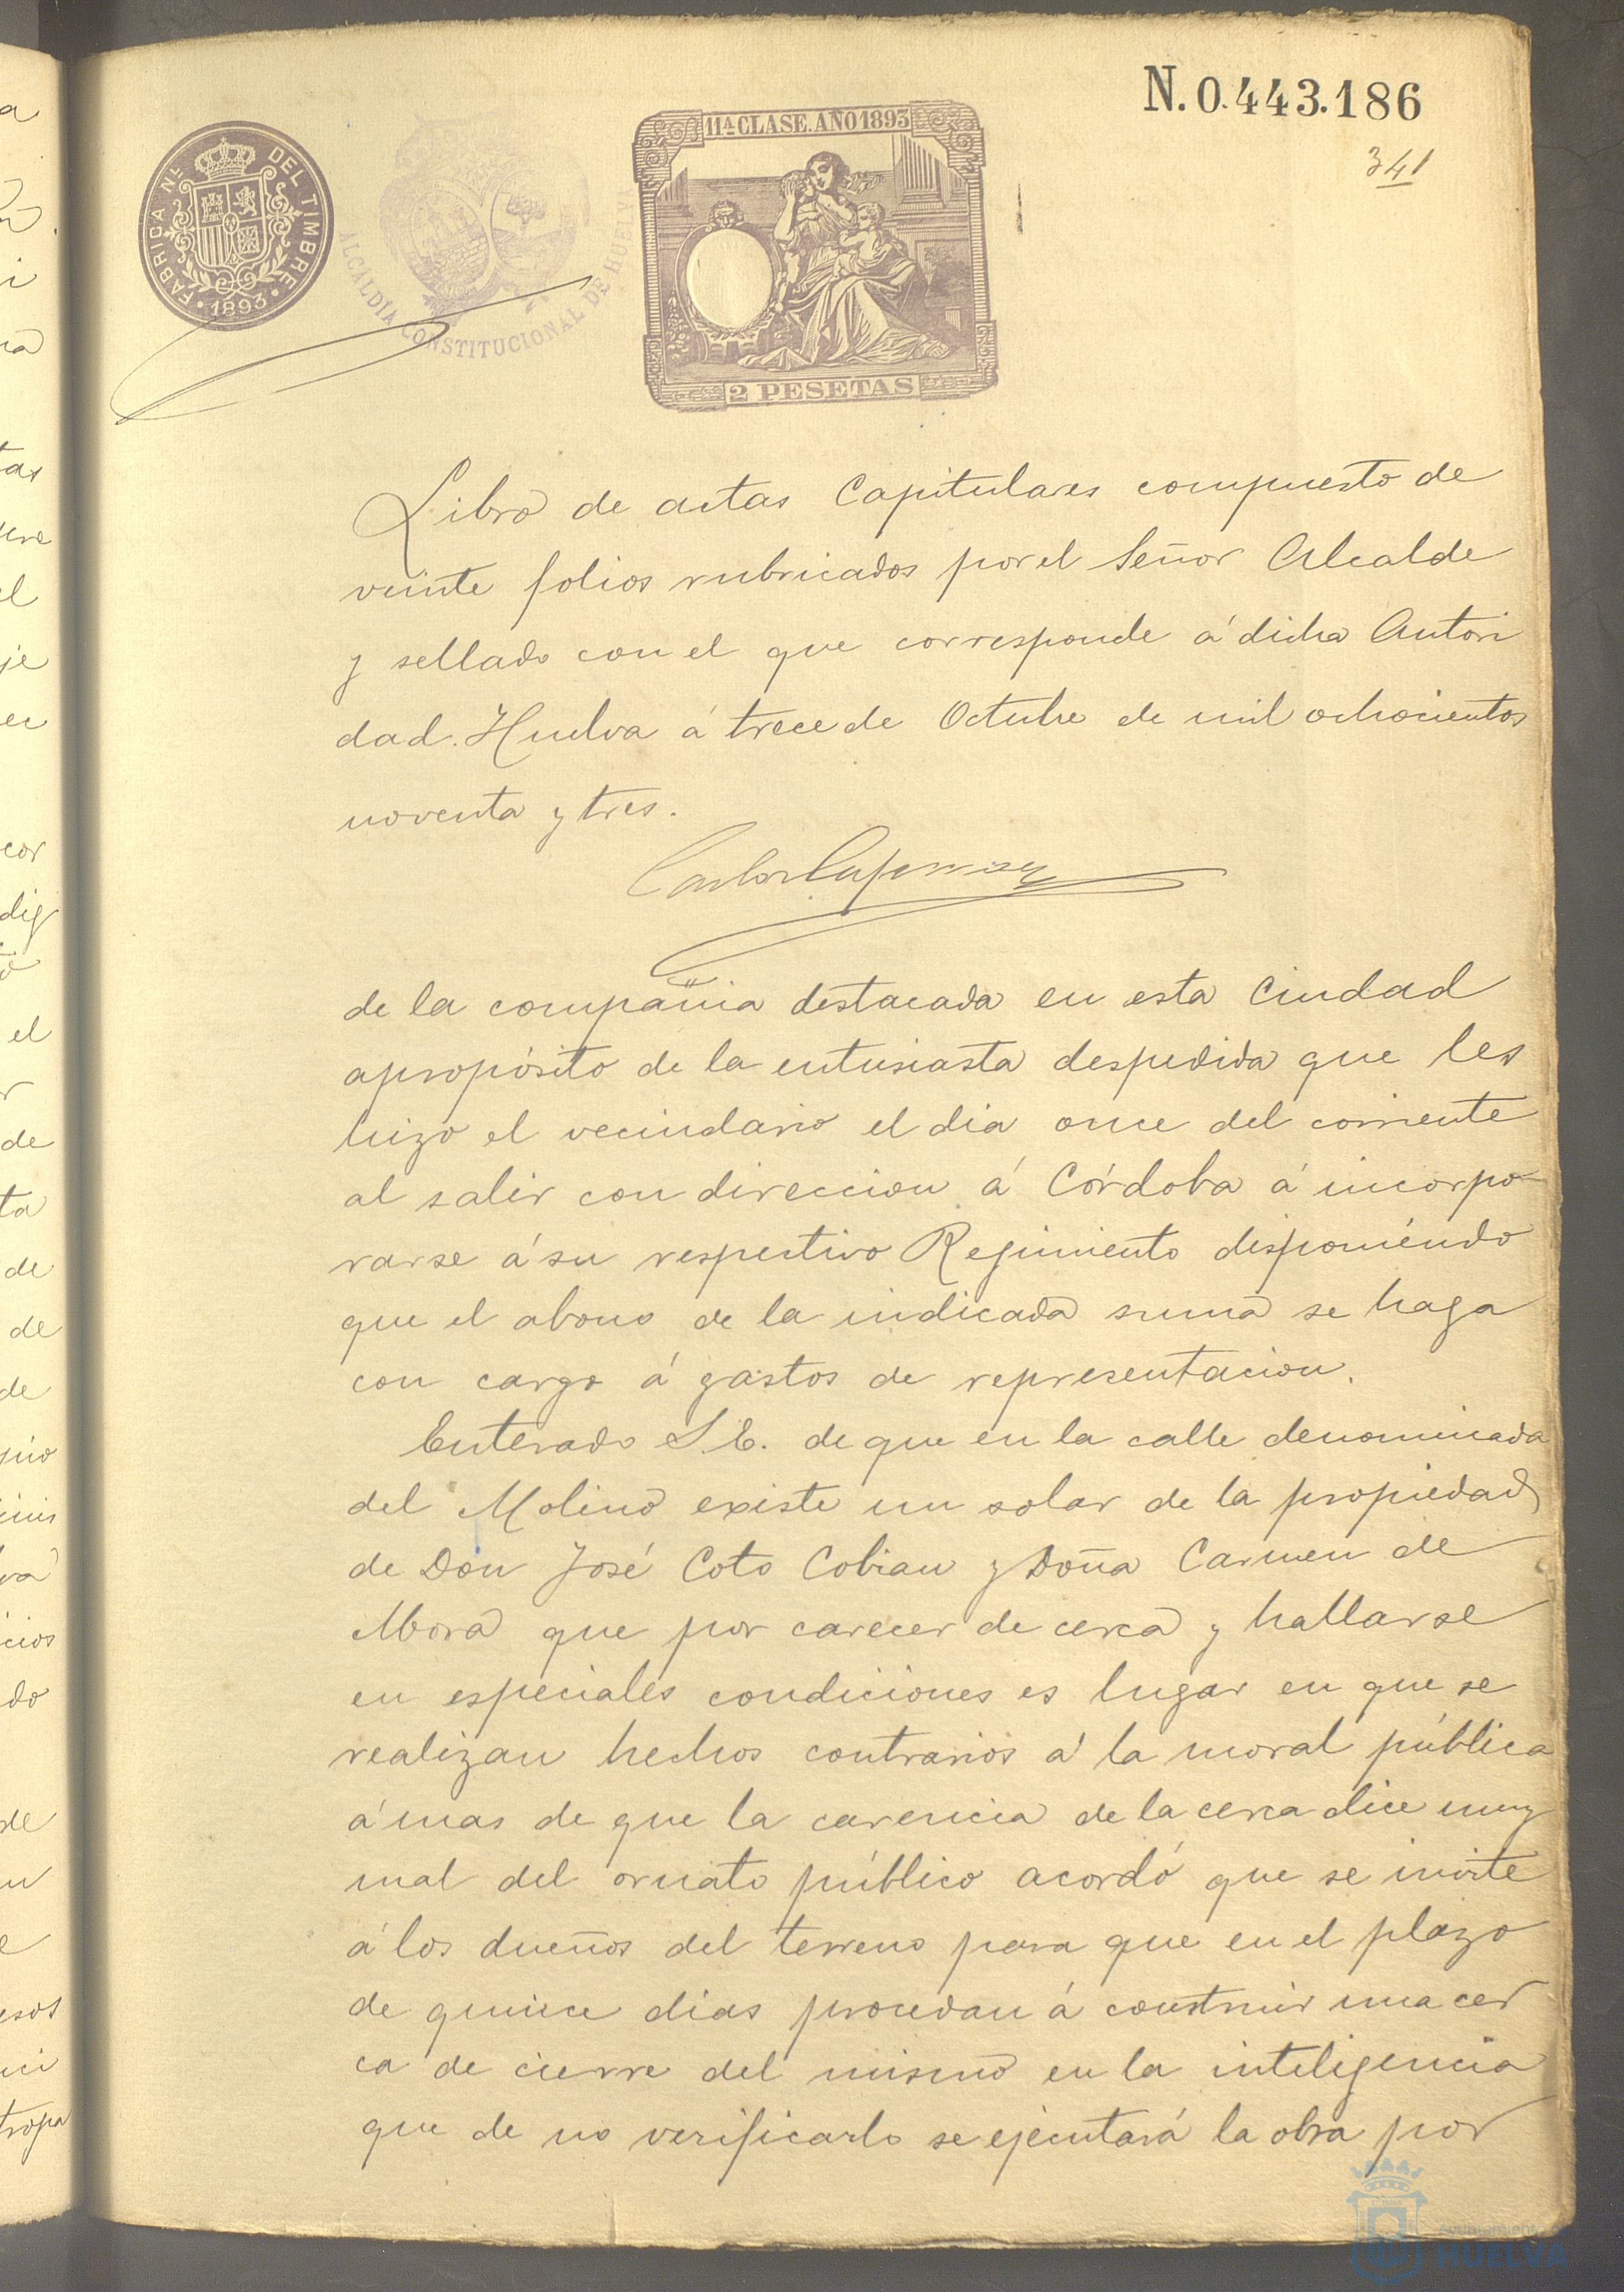 N. 0.443.186
341
FABRICA NL. DEL TIMBRE
1893
ALCALDÍA CONSTITUCIONAL DE HUELVA
11ª CLASE. AÑO 1893
2 PESETAS
Libro de actas Capitulares compuesto de
veinte folios rubricados por el Señor Alcalde
y sellado con el que corresponde á dicha Autori
dad. Huelva á trece de Octubre de mil ochocientos
noventa y tres.
Carlos
de la compañia destacada en esta Ciudad
apropósito de la entusiasta despedida que les
hizo el vecindario el dia once del corriente
al salir con direccion á Córdoba á incorpo-
rarse á su respectivo Regimiento disponiéndo
que el abono de la indicada suma se haga
con cargo á gastos de representacion.
Enterado S.E. de que en la calle denominada
del Molino existe un solar de la propiedad
de Don José Coto Cobian y Doña Carmen de
Mora que por carecer de cerca y hallarse
en especiales condiciones es lugar en que se
realizan hechos contrarios á la moral pública
á mas de que la carencia de la cerca dice muy
mal del ornato público acordó que se invite
á los dueños del terreno para que en el plazo
de quince dias procedan á construir una cer
ca de cierre del mismo en la inteligencia
que de no verificarlo se ejecutará la obra por
Ayuntamiento
HUELVA